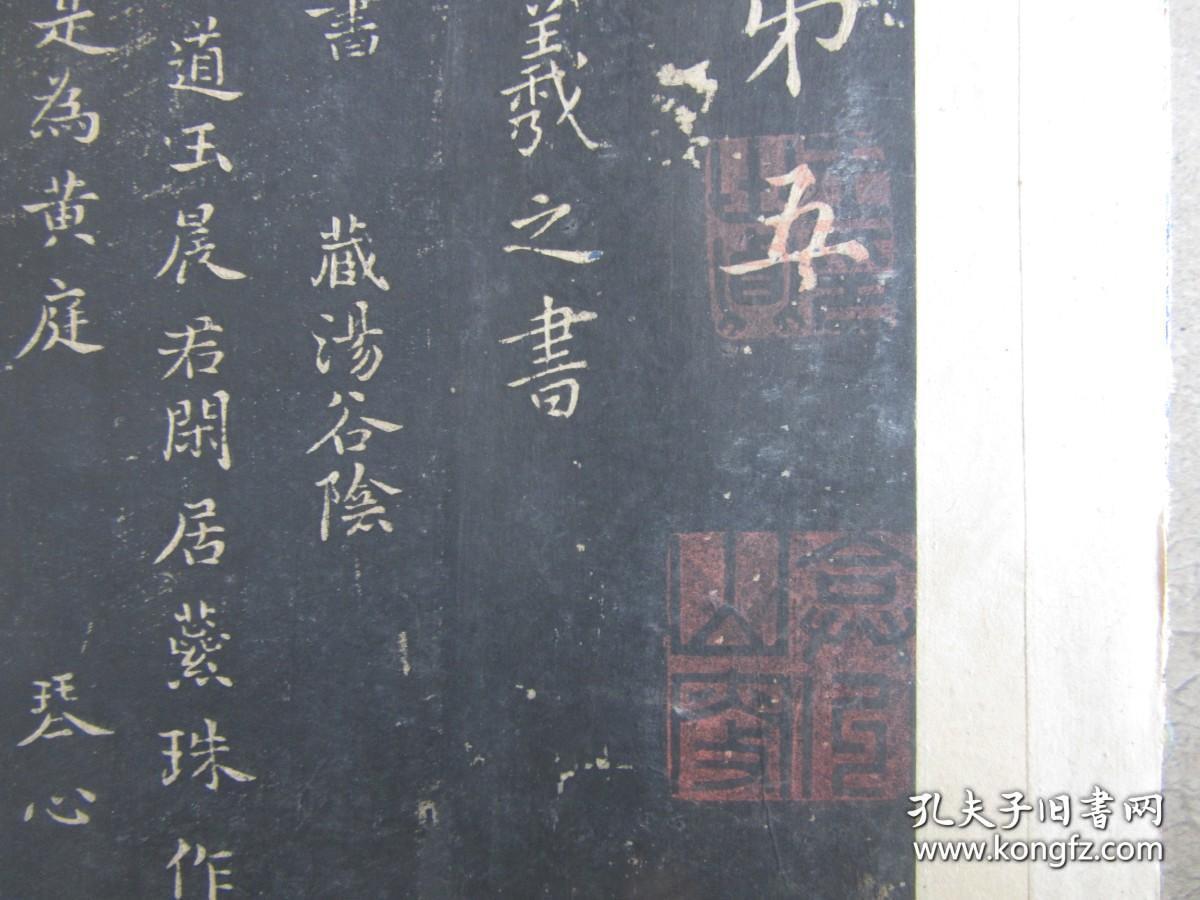 弟五
羲之書
書 藏湯谷陰
道玉晨君閑居蘂珠作
是為黃庭 琴心
孔夫子旧书网
www.kongfz.com